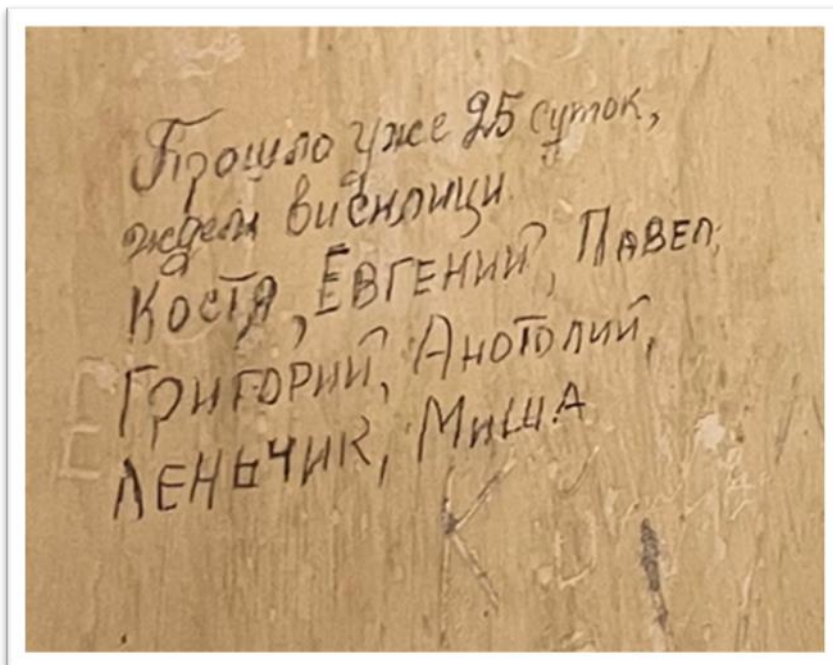 Прошло уже 25 суток,
ждем висилици
Костя, Евгений, Павел,
Григорий, Анотолий,
Леньчик, Миша